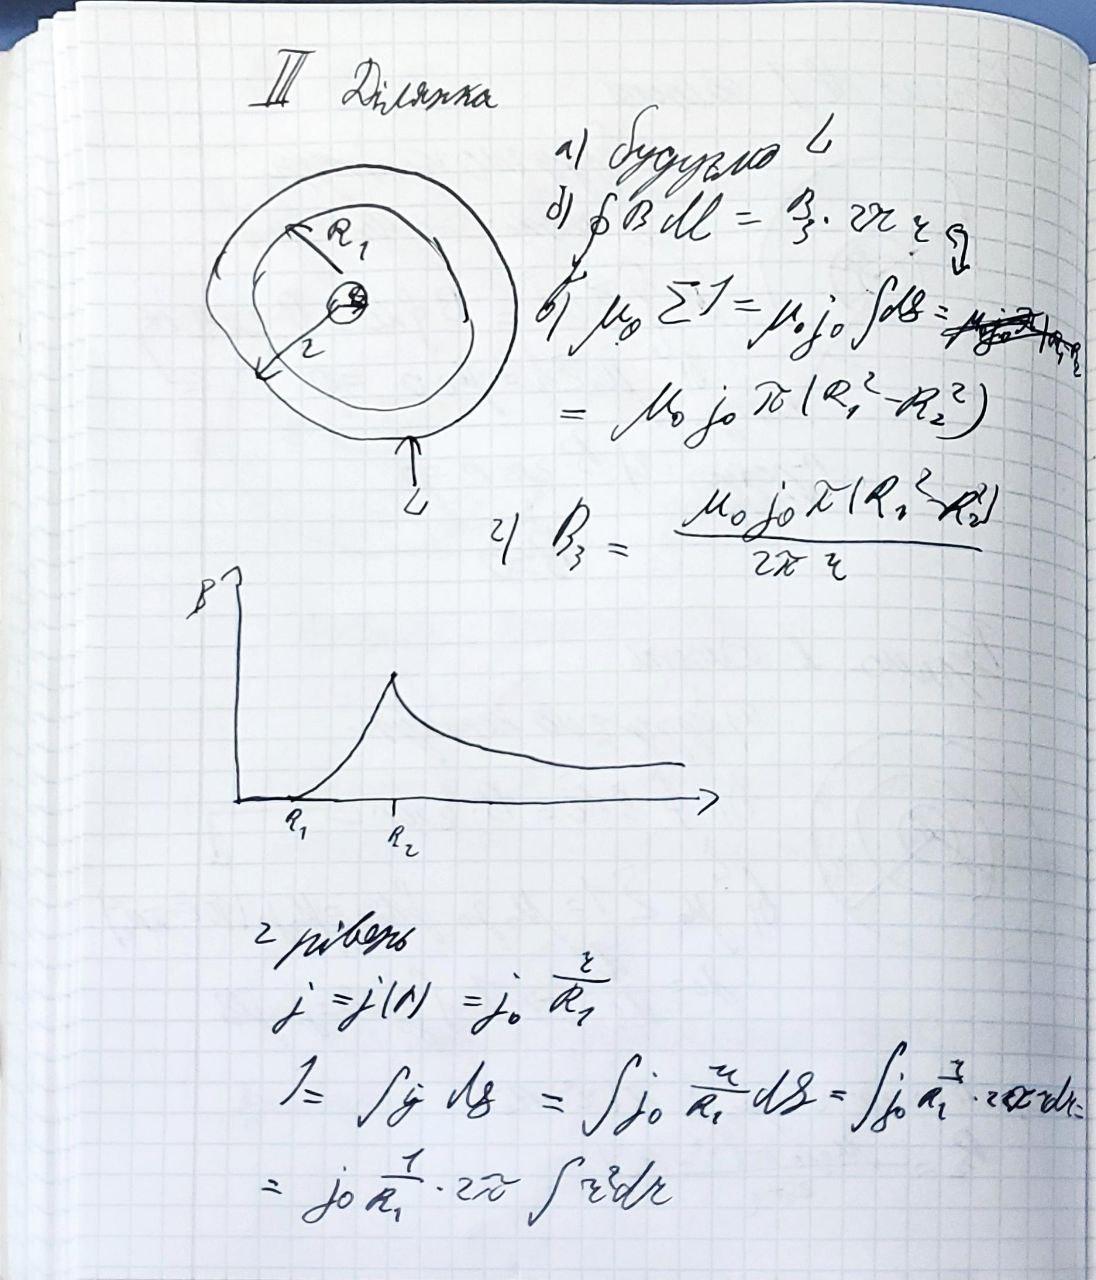 III Ділянка
R₁
r
L
а) будуємо L
б) ∮ B dl = B₃ · 2π r
в) μ₀ Σ I = μ₀ j₀ ∫ ds =
= μ₀ j₀ π (R₁² - R₂²)
г) B₃ = μ₀ j₀ π (R₁² - R₂²) / 2π r
B
R₁
R₂
2 рівень
j = j(r) = j₀ r/R₁
I = ∫ j ds = ∫ j₀ r/R₁ ds = ∫ j₀ r/R₁ · 2π r dr =
= j₀ 1/R₁ · 2π ∫ r² dr